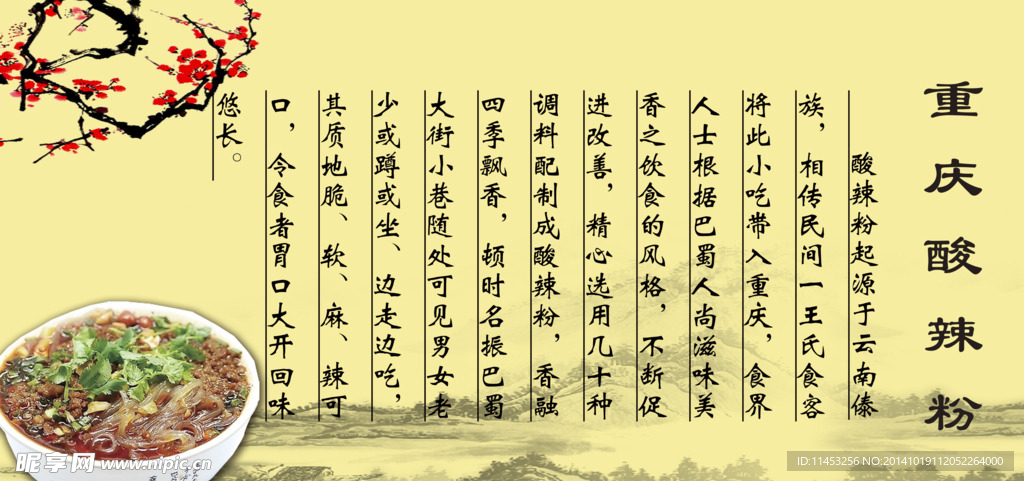 重庆酸辣粉
酸辣粉起源于云南傣
族，相传民间一王氏食客
将此小吃带入重庆，食界
人士根据巴蜀人尚滋味美
香之饮食的风格，不断促
进改善，精心选用几十种
调料配制成酸辣粉，香融
四季飘香，顿时名振巴蜀
大街小巷随处可见男女老
少或蹲或坐、边走边吃，
其质地脆、软、麻、辣可
口，令食者胃口大开回味
悠长。
昵享网 www.nipic.cn
ID:11453256 NO:20141019112052264000